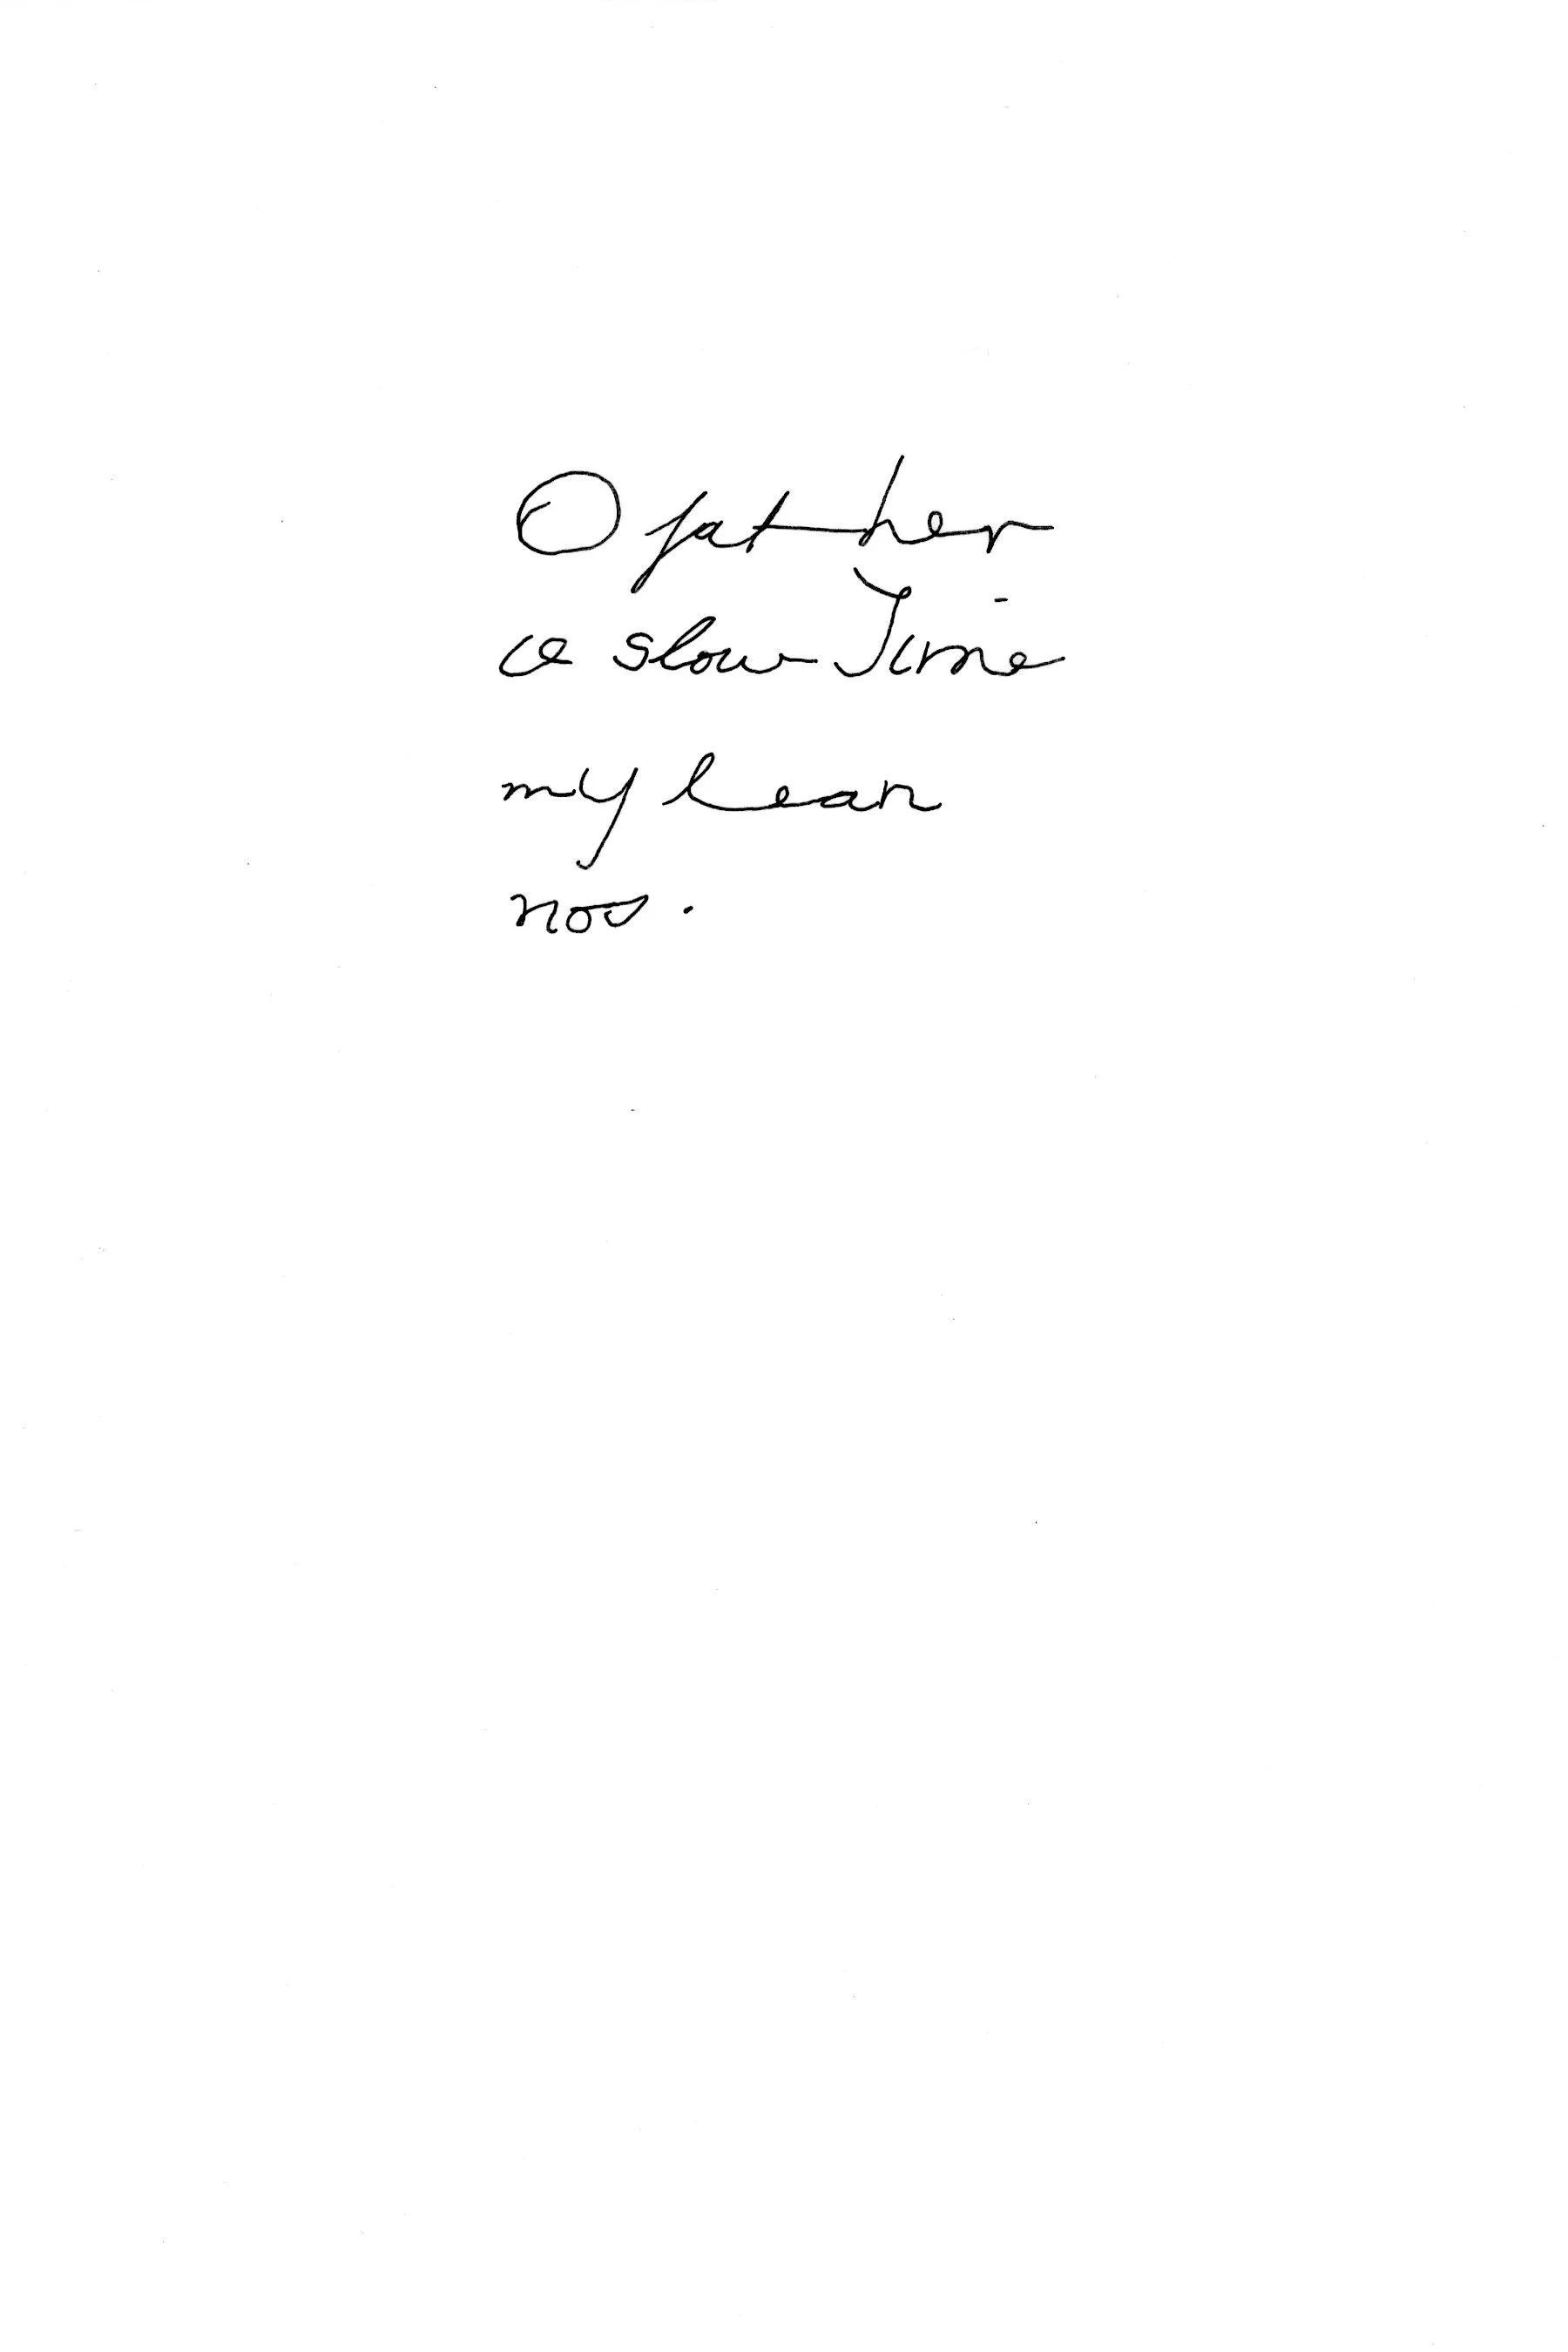 O father
a slow Time
my lean
now.